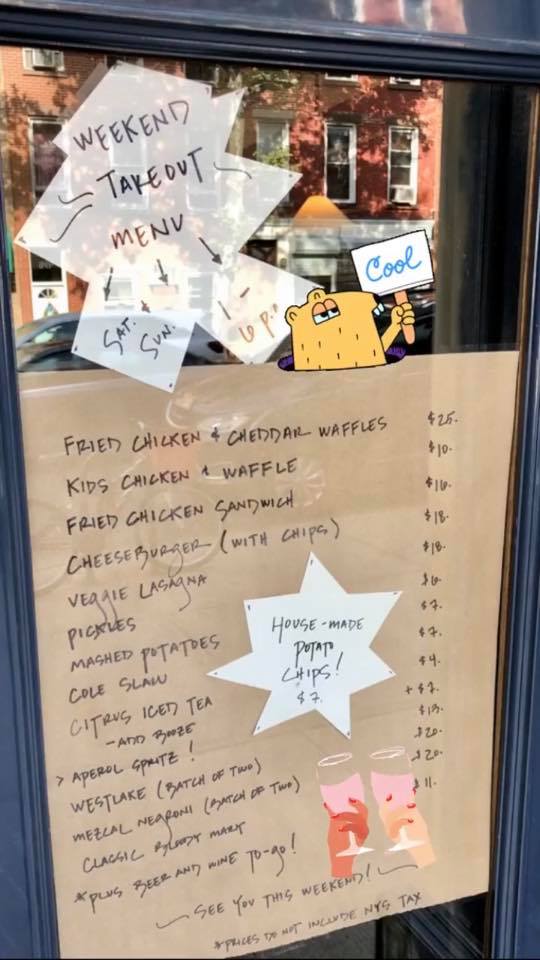 WEEKEND
TAKEOUT
MENU
SAT. & SUN.
1-6 p.
Cool
FRIED CHICKEN & CHEDDAR WAFFLES $25.
KIDS CHICKEN & WAFFLE $10.
FRIED CHICKEN SANDWICH $16.
CHEESEBURGER (WITH CHIPS) $18.
VEGGIE LASAGNA $18.
PICKLES $6.
MASHED POTATOES $7.
COLE SLAW $7.
CITRUS ICED TEA $4.
-ADD BOOZE + $7.
> APEROL SPRITZ! $13.
WESTLAKE (BATCH OF TWO) $20.
MEZCAL NEGRONI (BATCH OF TWO) $20.
CLASSIC BLOODY MARY $11.
*PLUS BEER AND WINE TO-GO!
HOUSE-MADE
POTATO
CHIPS!
$7.
SEE YOU THIS WEEKEND!
*PRICES DO NOT INCLUDE NYS TAX